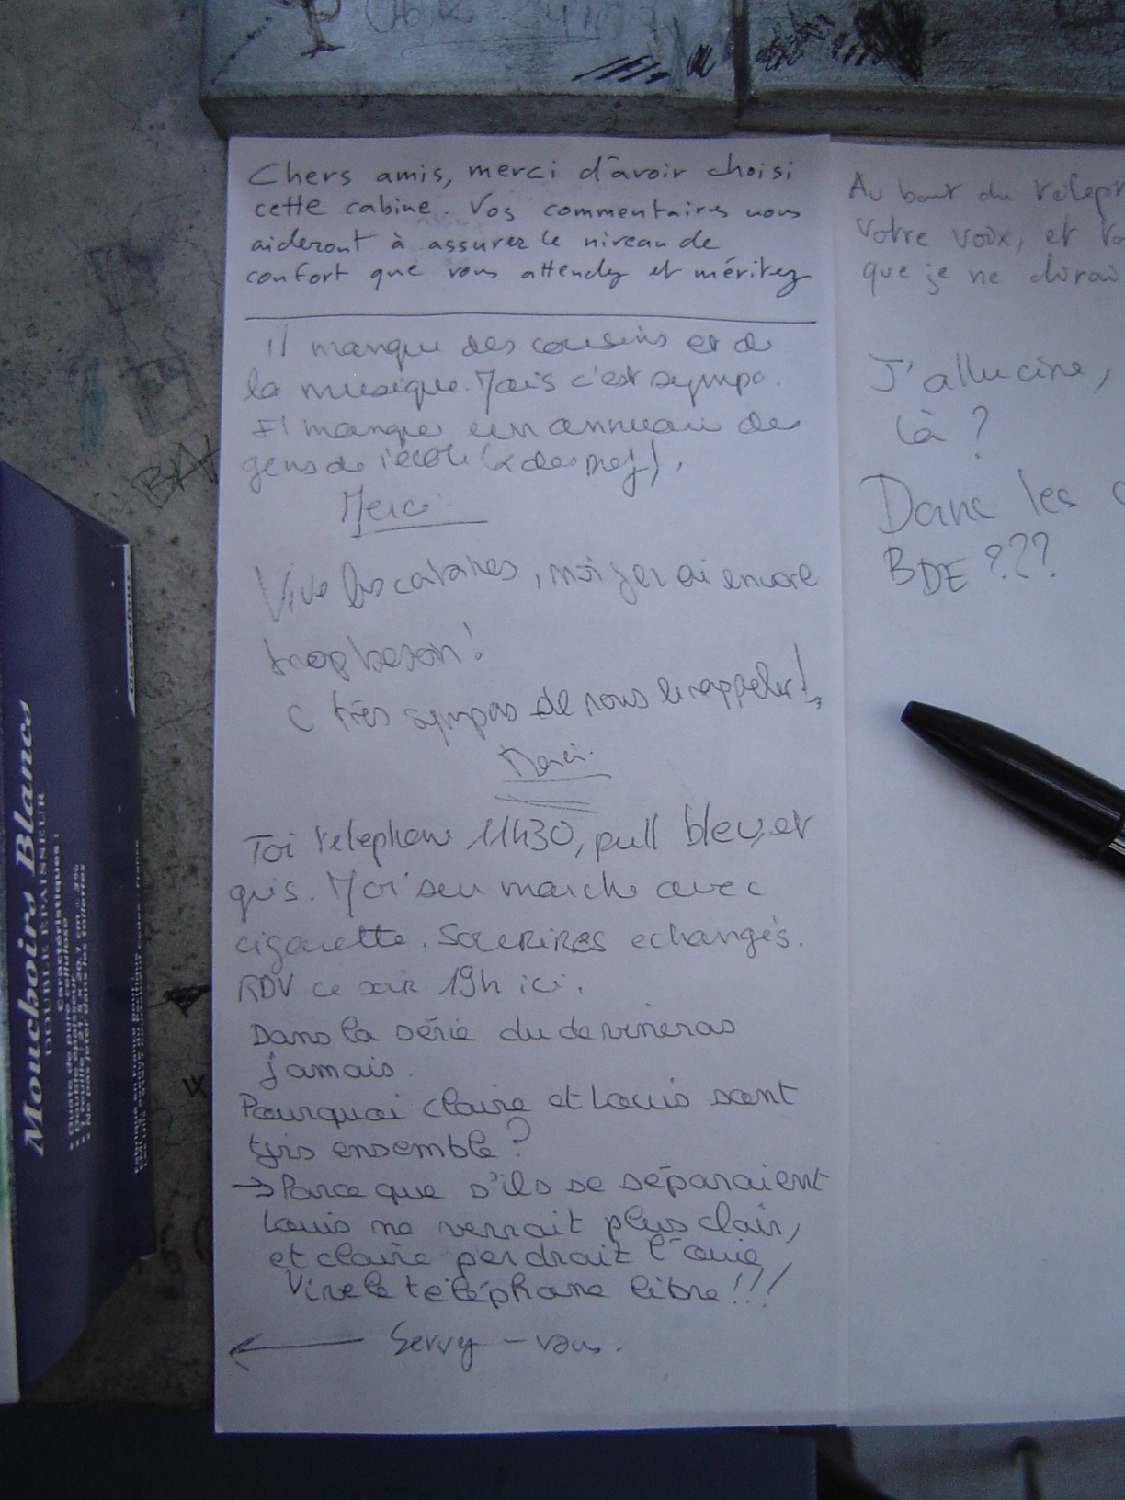 Chers amis, merci d'avoir choisi
cette cabine. Vos commentaires nous
aideront à assurer le niveau de
confort que vous attendez et méritez
Il manque des cousins et de
la musique. Mais c'est sympa.
Il manque un annuaire de
gens de l'école (& des prof).
Merci.
Vive les cabines, moi j'en ai encore
trop besoin!
C très sympas de nous le rappeler!
Merci.
Toi telephone 11h30, pull bleu et
gris. Moi seu marche avec
cigarette. Sourires echangés.
RDV ce soir 19h ici.
Dans la série du devineras
jamais.
Pourquoi claire et Louis sont
tjrs ensemble?
→ Parce que s'ils se séparaient
Louis ne verrait plus clair,
et claire perdrait l'ouie
Vive le téléphone libre!!!
← Servez-vous.
Au bout du
votre voix, et
que je ne
J'allucine,
là?
Dans les
BDE???
Mouchoirs Blancs
DOUBLE EPAISSEUR
Caractéristiques :